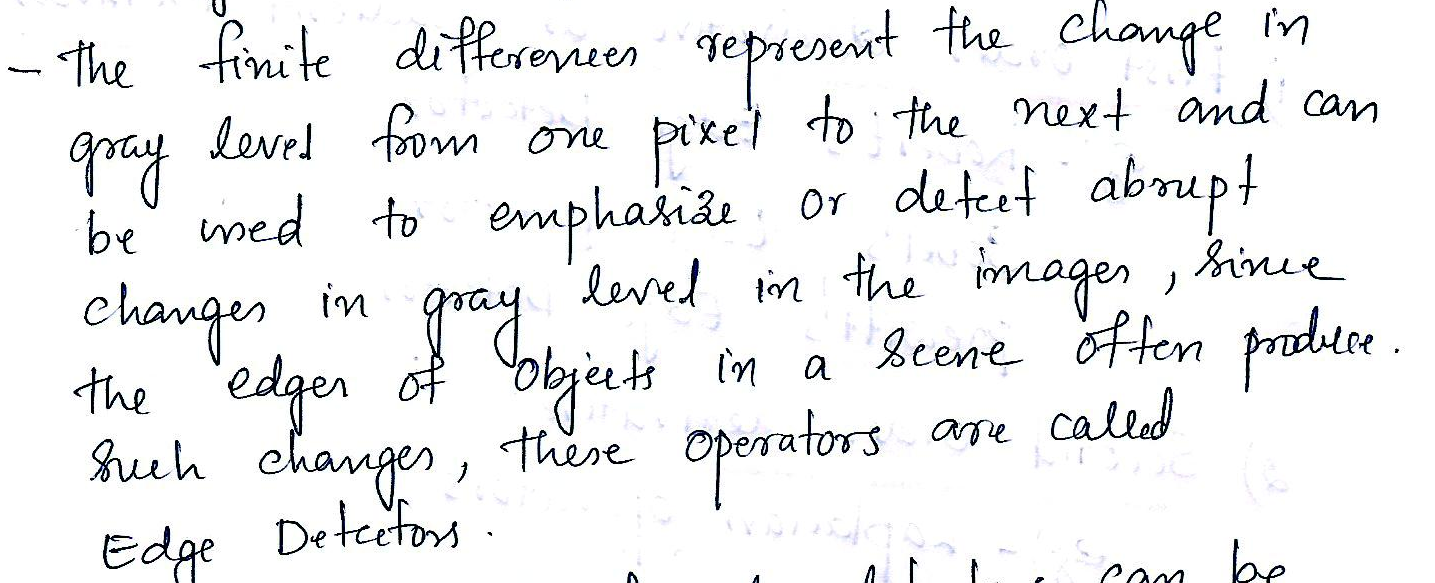 - The finite differences represent the change in
gray level from one pixel to the next and can
be used to emphasize or detect abrupt
changes in gray level in the images, since
the edges of objects in a scene often produce.
such changes, these operators are called
Edge Detectors.
can be